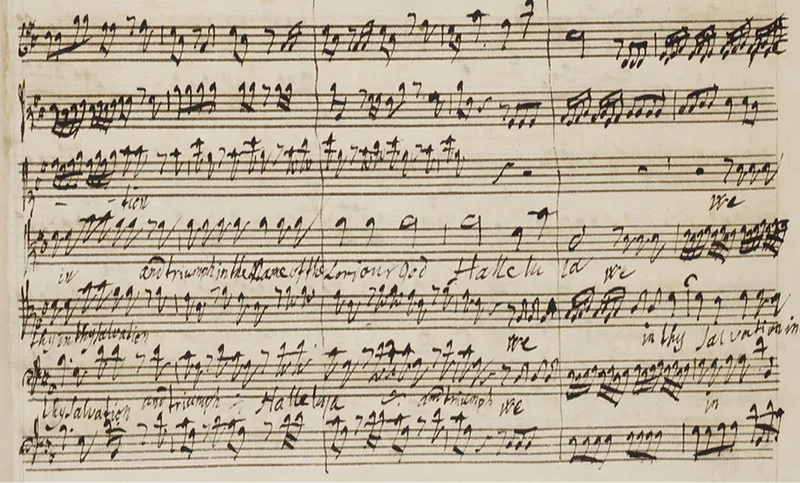 - - tion we
in and triumph in the Name of the Lord our God Hallelu ia we
thy in thy Salvation we in thy Salvation in
thy Salvation and triumph Halleluia and triumph we in